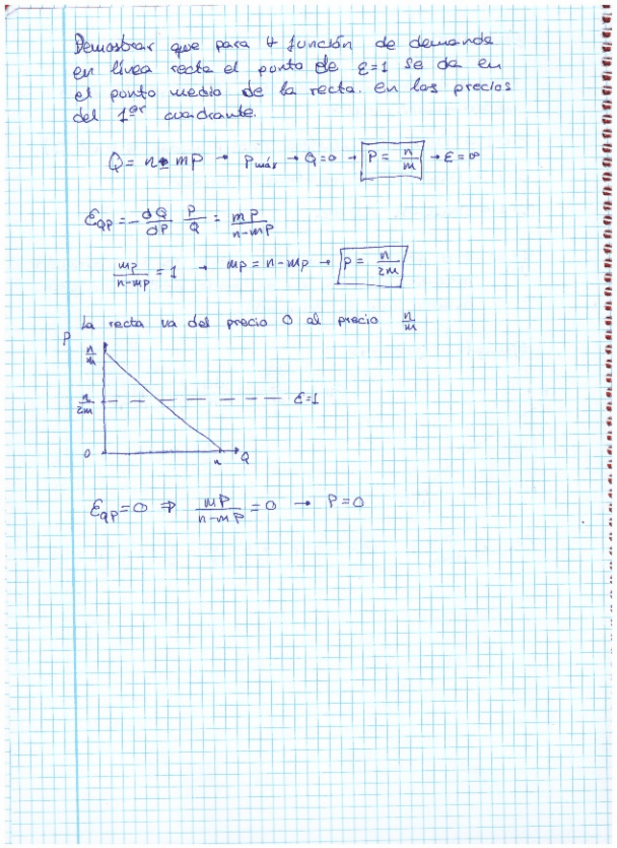 Demostrar que para ∀ función de demanda
en línea recta el punto de ε=1 se da en
el punto medio de la recta. en los precios
del 1er cuadrante.
Q = n - mP → Pmáx → Q=0 → P = n/m → ε = ∞
εQP = - dQ/dP P/Q = mP/(n-mP)
mp/(n-mp) = 1 → mp = n-mp → p = n/2m
La recta va del precio 0 al precio n/m
P
n/m
n/2m
ε=1
0
n
Q
εQP = 0 ⇒ mP/(n-mP) = 0 → P=0